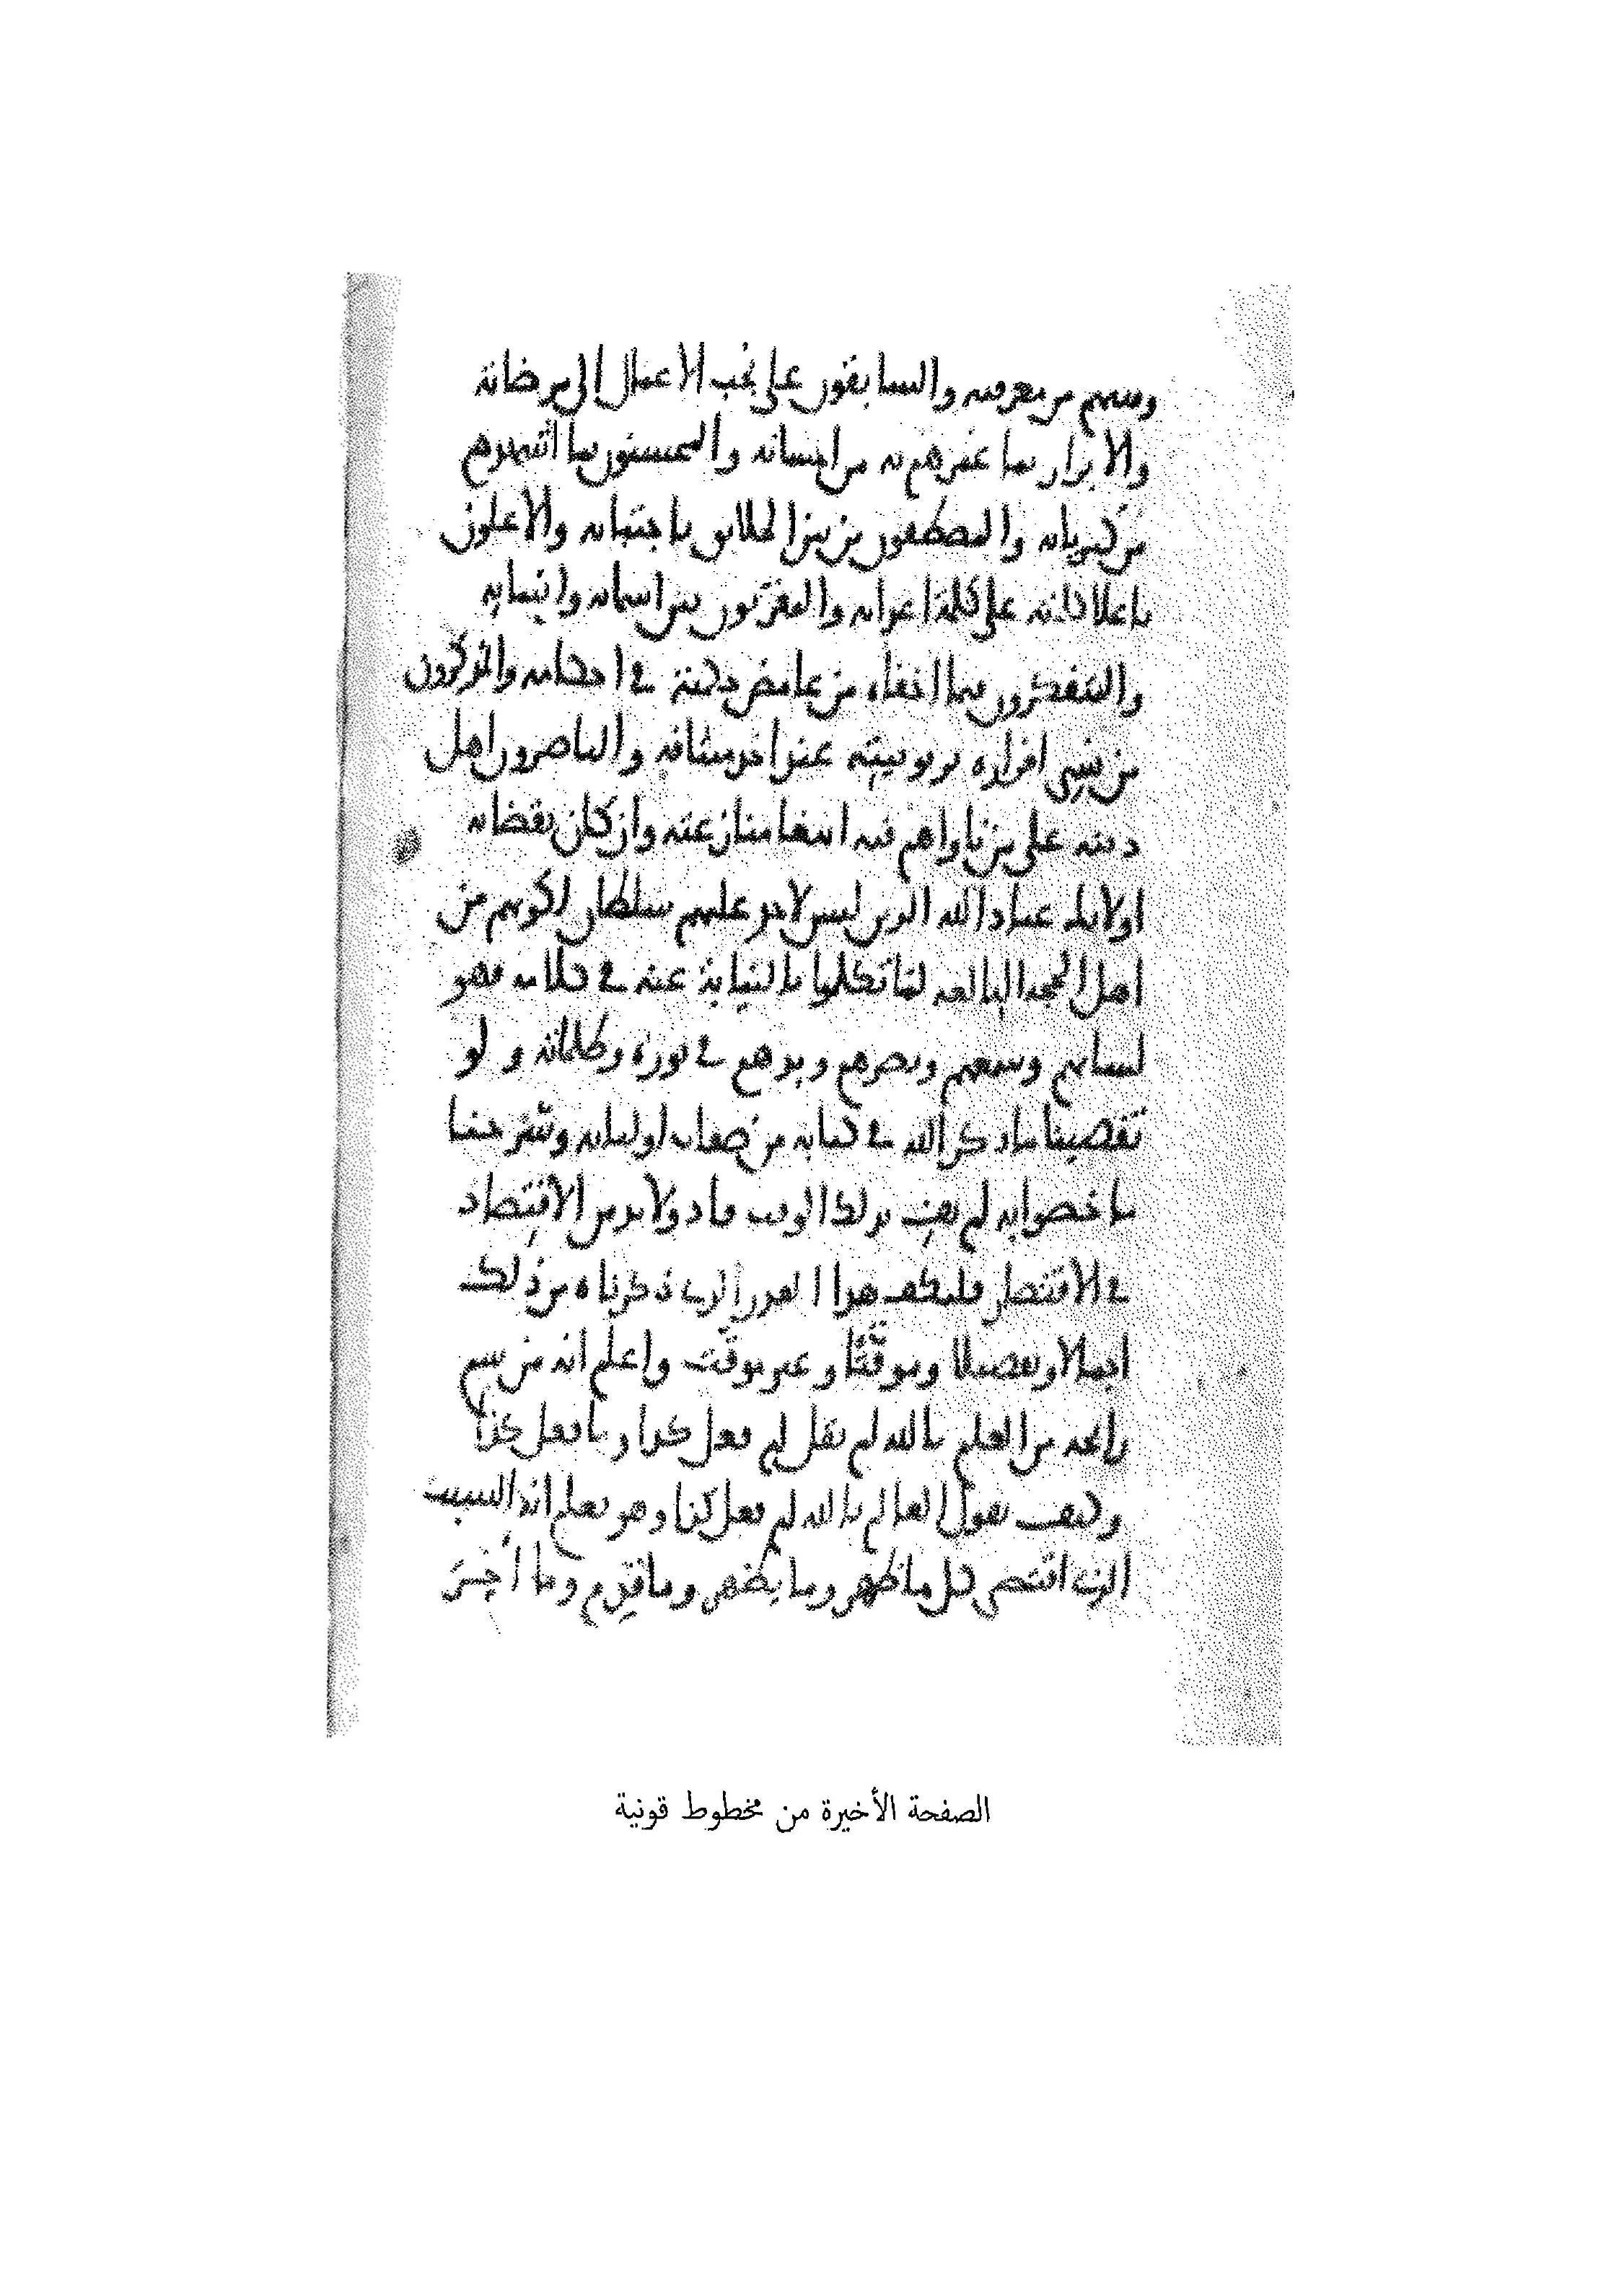 وبينهم من معرفته والسابقون على نجب الاعمال الى مرضاته
والابرار بما غمرهم به من احسانه والمحسنون بما اشهدهم
من كبريائه والمصطفون من بين الخلائق باجتبائه والاعلون
باعلا كلمته على كلمة اعدائه والمقربون بين اسمائه وانبيائه
والمتفكرون فيما اخفاه من غامض حكمته في احكامه والمذكرون
من نسي اقراره بربوبيته عند اخذ ميثاقه والناصرون اهل
دينه على من ناواهم فيه ابتغا منازعته وان كان بقضائه
اولايك عباد الله الذين ليس لاحد عليهم سلطان لكونهم من
اهل الحجة البالغة لما تكلموا بالنيابة عنه في كلامه فهو
لسانهم وسمعهم وبصرهم ويدهم في نوره وظلماته ولو
تقصينا ما ذكر الله في كتابه من صفات اوليايه وشرحنا
ما خصوا به لم يف بذلك الوقت فاذ ولا بد من الاقتصاد
في الاقتصار فليكف هذا القدر الذي ذكرناه من ذلك
اجمالا وتفصيلا وموقتا وغير موقت واعلم انه من شم
رائحة من العلم بالله لم يقل لم فعل كذا وما فعل كذا
وكيف يقول العالم بالله لم فعل كذا وهو يعلم انه السبب
الذي اقتضى كل ما ظهر وما يظهر وما قدم وما أخر
الصفحة الأخيرة من مخطوط قونية